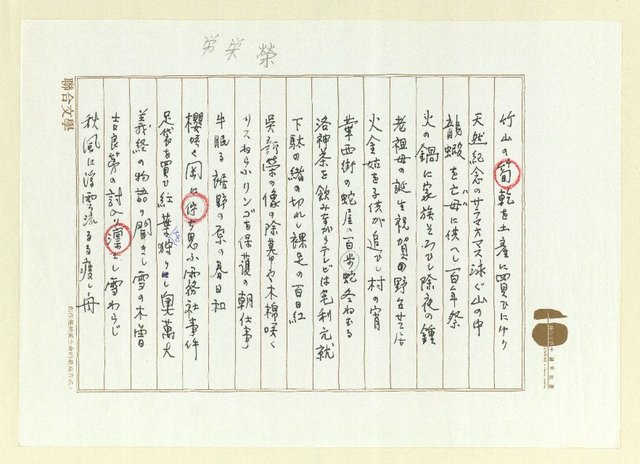 労 栄 榮
竹山の筍乾を土産に買ひにけり
天然紀念のサラマオマス泳ぐ山の中
龍蝦を亡母に供へし百年祭
火の鍋に家族そろひし除夜の鐘
老祖母の誕生祝賀の野台せて
火金姑を子供が追ひし村の宵
華西街の蛇屋の百歩蛇冬ねむる
洛神茶を飲みながらテレビは毛利元就
下駄の緒の切れし裸足の百日紅
呉新榮の像の除幕や木棉咲く
リスねらふリンゴを保護の朝仕事
牛眠る裾野の原の春日和
櫻咲く間に停ち思ふ霧社事件
足袋を買ひ紅葉狩りにし奥萬大
義経の物語り聞きし雪の木曽
吉良勢の討入り凜とし雪わらじ
秋風に浮雲流るる渡し舟
聯合文學